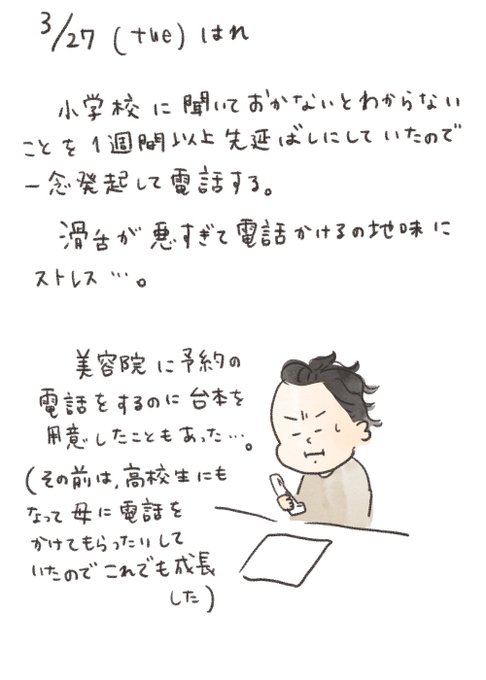 3/27 (tue) はれ
小学校に聞いておかないとわからない
ことを1週間以上先延ばしにしていたので
一念発起して電話する。
滑舌が悪すぎて電話かけるの地味に
ストレス…。
美容院に予約の
電話をするのに台本を
用意したこともあった…。
(その前は、高校生にも
なって母に電話を
かけてもらったりして
いたのでこれでも成長
した)